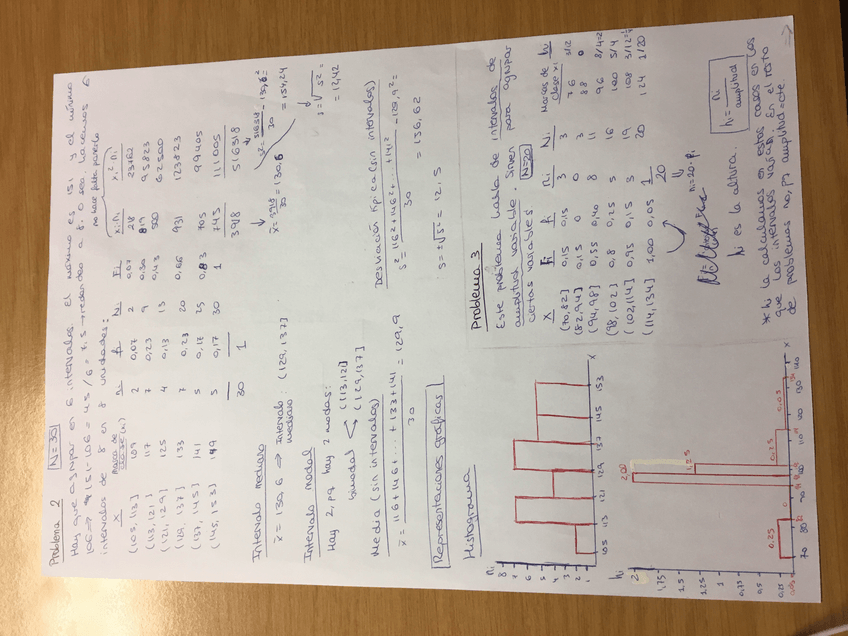 Problema 2 N=30
Hay que agrupar en 6 intervalos. El máximo es 151 y el mínimo
106 → 151-106 = 45 / 6 = 7,5 → redondeo a 8. O sea, hacemos 6
intervalos de 8 en 8 unidades:
no hace falta ponerlo
X Marcas de clase (xi) ni fi Ni Fi xi·ni xi²·ni
(105, 113] 109 2 0,07 2 0,07 218 23762
(113, 121] 117 7 0,23 9 0,30 819 95823
(121, 129] 125 4 0,13 13 0,43 500 62500
(129, 137] 133 7 0,23 20 0,66 931 123823
(137, 145] 141 5 0,17 25 0,83 705 99405
(145, 153] 149 5 0,17 30 1 745 111005
30 1 3918 516318
Intervalo mediano
x̄ = 130,6 → Intervalo mediano: (129, 137]
x̄ = 3918/30 = 130,6
s² = 516318/30 - 130,6² =
= 154,24
s = √s² =
= 12,42
Intervalo modal
Hay 2, pq hay 2 modas:
bimodal
(113, 121]
(129, 137]
Media (sin intervalos)
x̄ = 116+146+...+133+141 / 30 = 129,9
Desviación típica (sin intervalos)
s² = 116²+146²+...+141² / 30 - 129,9² =
= 156,62
s = ±√s² = 12,5
Representaciones gráficas
Histograma
ni
8
7
6
5
4
3
2
1
105 113 121 129 137 145 153 x
Problema 3
Este problema habla de intervalos de
amplitud variable. Sirven para agrupar
ciertas variables. N=20
X Fi fi ni Ni Marcas de clase xi hi
(70, 82] 0,15 0,15 3 3 76 3/12
(82, 94] 0,15 0 0 3 88 0
(94, 98] 0,55 0,40 8 11 96 8/4=2
(98, 102] 0,8 0,25 5 16 100 5/4
(102, 114] 0,95 0,15 3 19 108 3/12=1/4
(114, 134] 1,00 0,05 1 20 124 1/20
20
ni = 20·fi
hi es la altura.
hi = ni / amplitud
* hi la calculamos en estos casos en los
que los intervalos varían. En el resto
de problemas no, pq amplitud=cte.
hi
2
1,75
1,5
1,25
1
0,75
0,5
0,25
0,25
2,00
1,25
0,25
0,05
70 80 90 100 110 120 130 140 x